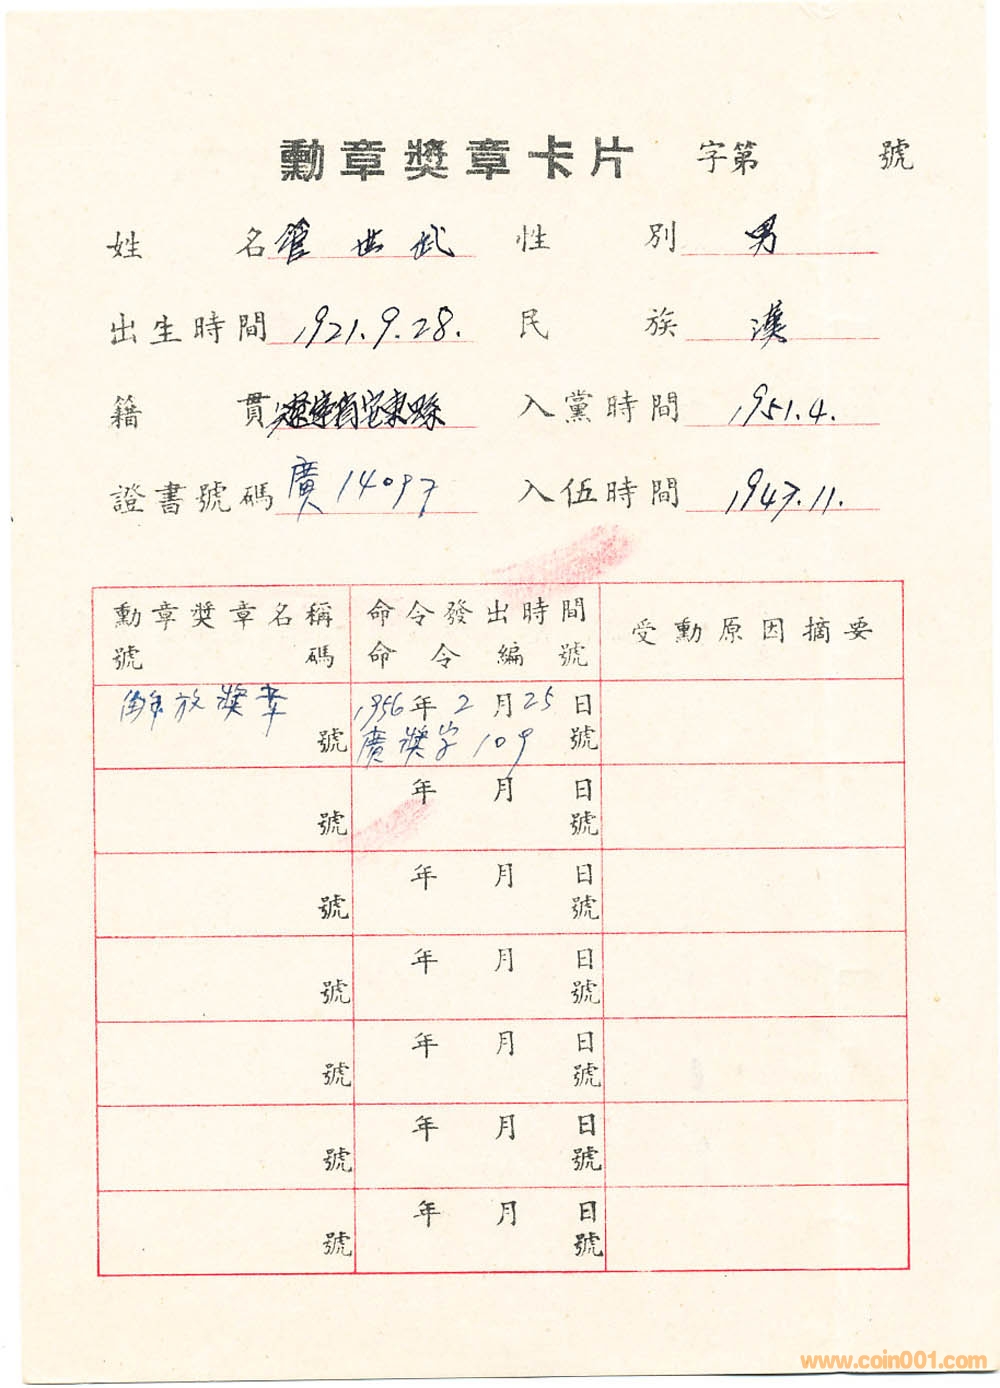 勳章獎章卡片 字第 號
姓 名 管世武 性 別 男
出生時間 1921.9.28. 民 族 漢
籍 貫 遼寧省宽東縣 入黨時間 1951.4.
證書號碼 廣14097 入伍時間 1947.11.
勳章獎章名稱 命令發出時間 受勳原因摘要
號 碼 命令編號
解放獎章 1956年2月25日
號 廣獎字109號
年 月 日
號 號
年 月 日
號 號
年 月 日
號 號
年 月 日
號 號
年 月 日
號 號
年 月 日
號 號
www.coin001.com